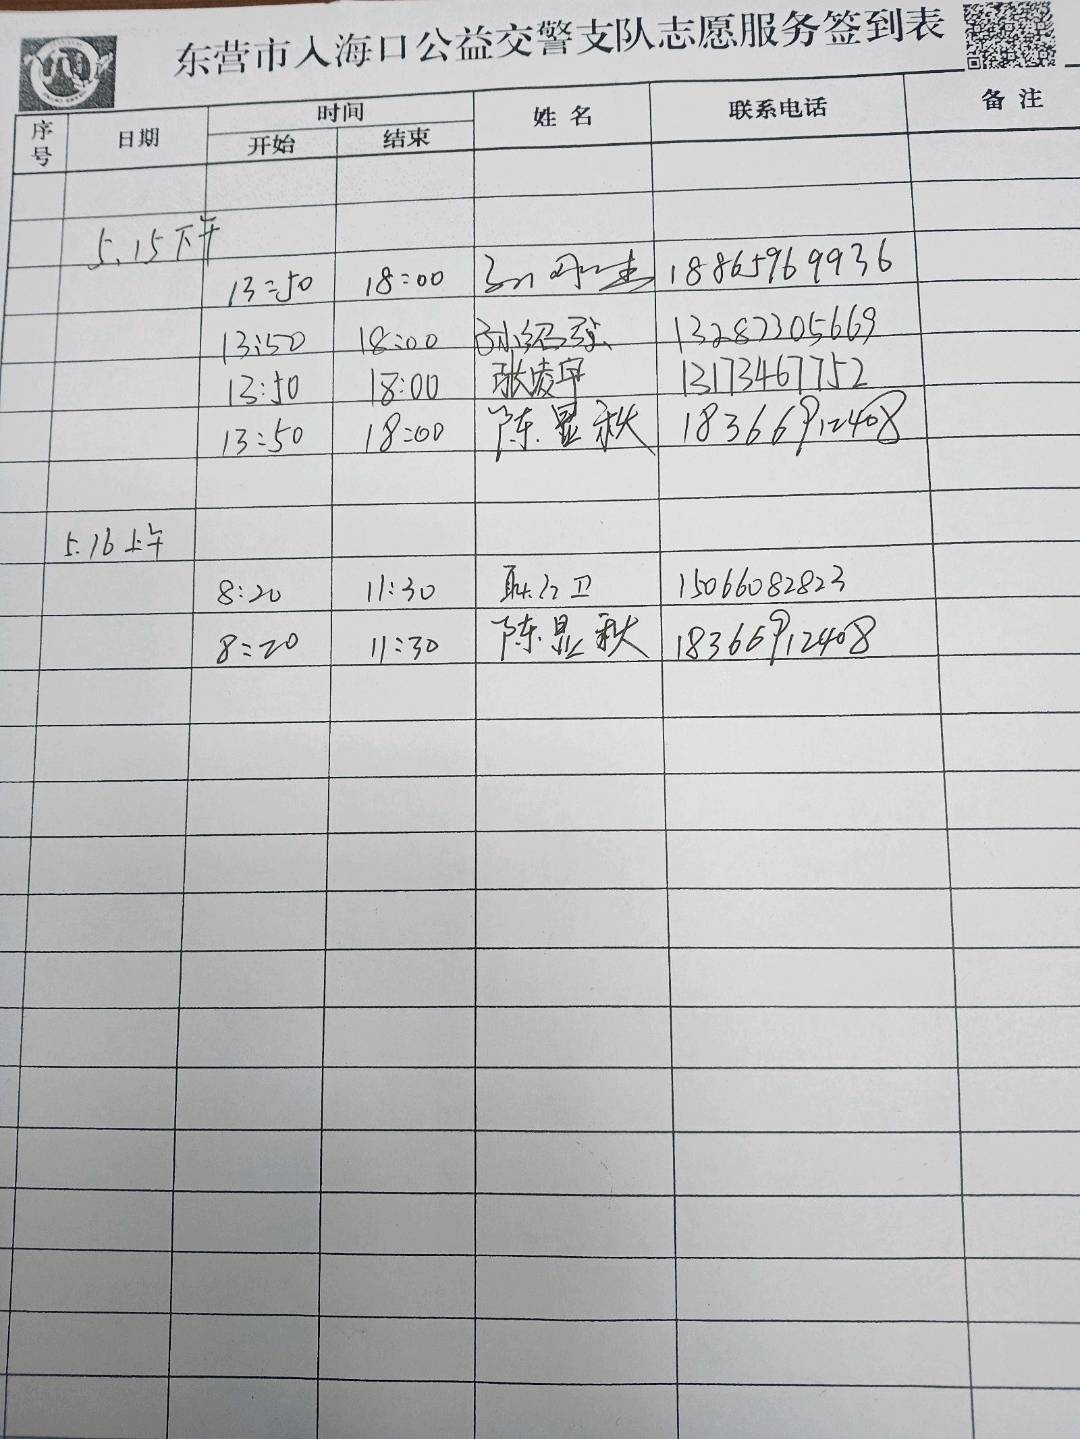 东营市入海口公益交警支队志愿服务签到表
序号 日期 时间 姓名 联系电话 备注
开始 结束
5.15下午
13:50 18:00 18865969936
13:50 18:00 13287305669
13:50 18:00 张凌宇 13173467752
13:50 18:00 陈显秋 18366912408
5.16上午
8:20 11:30 15066082823
8:20 11:30 陈显秋 18366912408